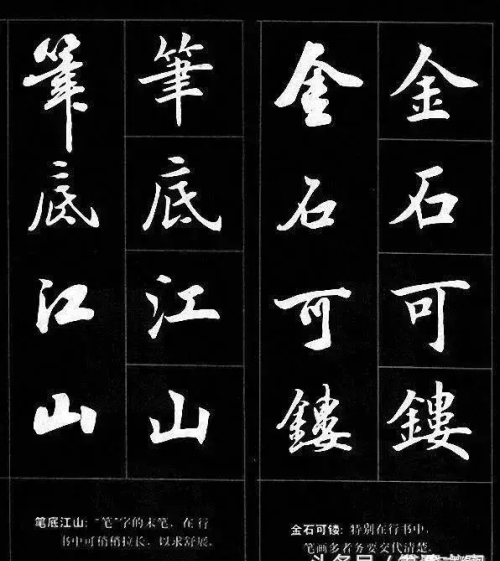 金石可鏤
金石可鏤
金石可镂：特别在行书中，
笔画多者务要交代清楚。
筆底江山
筆底江山
笔底江山：“笔”字的末笔，在行
书中可稍稍拉长，以求舒展。